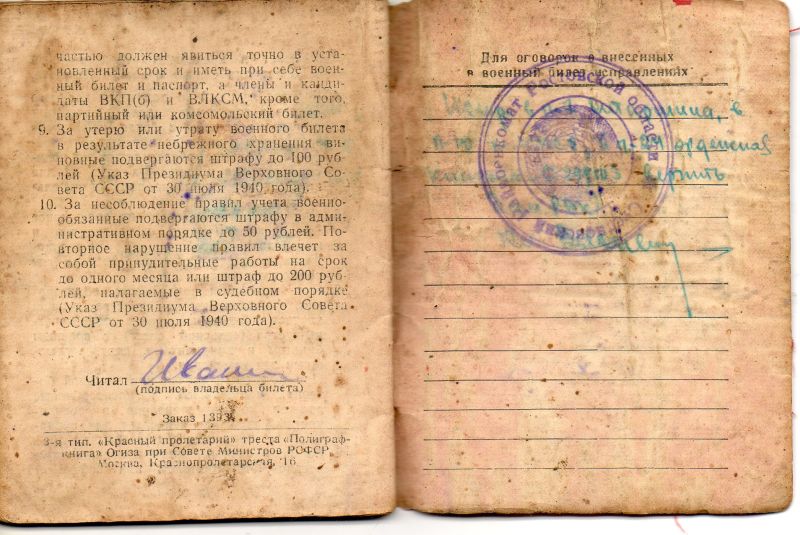 частью должен явиться точно в уста-
новленный срок и иметь при себе воен-
ный билет и паспорт, а члены и канди-
даты ВКП(б) и ВЛКСМ, кроме того,
партийный или комсомольский билет.
9. За утерю или утрату военного билета
в результате небрежного хранения ви-
новные подвергаются штрафу до 100 руб-
лей (Указ Президиума Верховного Со-
вета СССР от 30 июля 1940 года).
10. За несоблюдение правил учета военно-
обязанные подвергаются штрафу в адми-
нистративном порядке до 50 рублей. По-
вторное нарушение правил влечет за
собой принудительные работы на срок
до одного месяца или штраф до 200 руб-
лей, налагаемые в судебном порядке
(Указ Президиума Верховного Совета
СССР от 30 июля 1940 года).
Читал
(подпись владельца билета)
Заказ 1393.
3-я тип. «Красный пролетарий» треста «Полиграф-
книга» Огиза при Совете Министров РСФСР.
Москва, Краснопролетарская, 16
Для оговорок о внесенных
в военный билет исправлениях
Ростовской области
в
орденская
верить